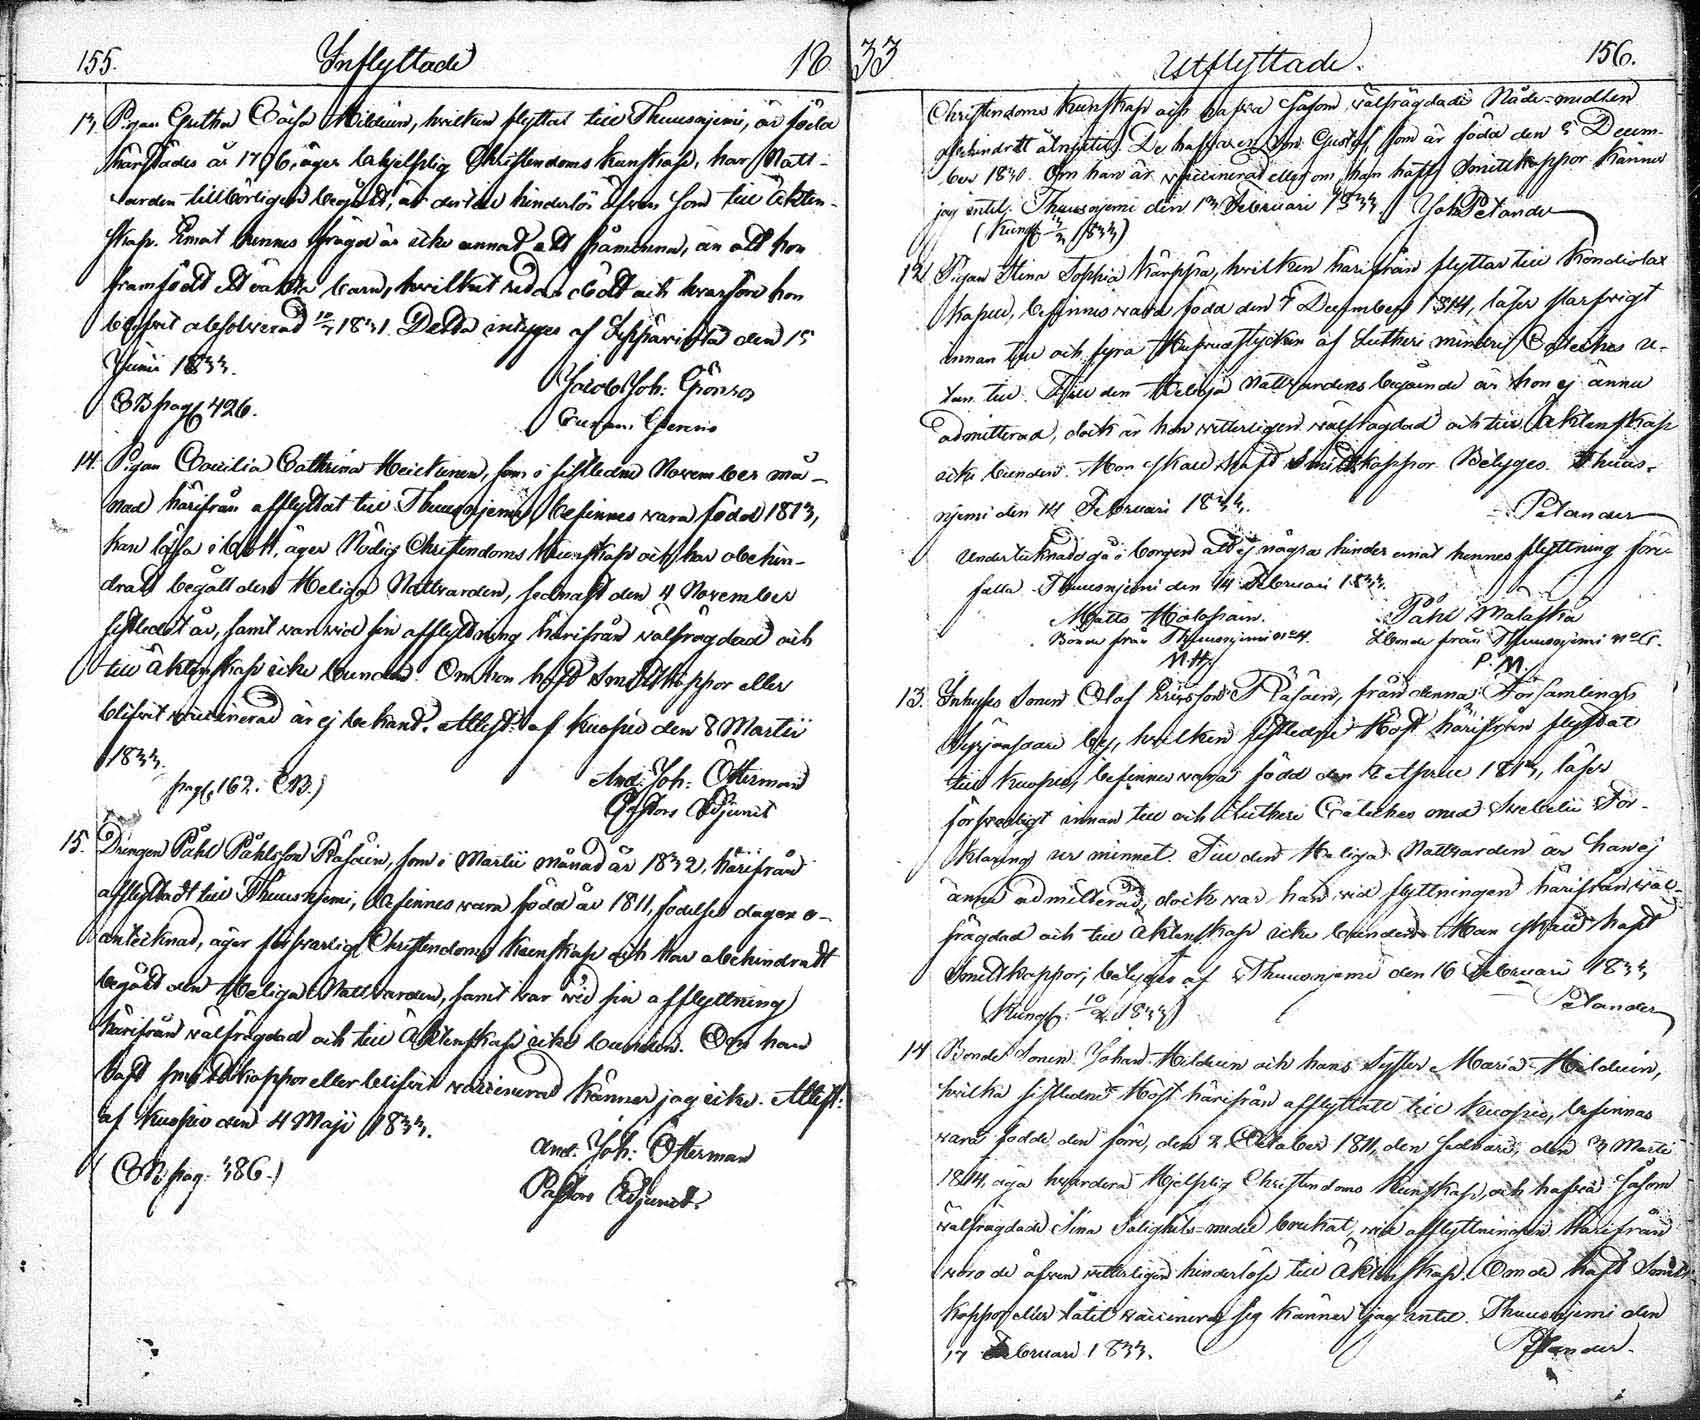 155. Inflyttade 18
13, Pigan Gretha Caisa Milduin, hvilken flyttat till Thuusnjemi, är född
härstädes år 1796, äger behjelplig Christendoms kunskap, har Natt-
varden tillbörligen begått, är destill hinderlös äfven som till äkten-
skap. Emot hennes frägd är icke annat att påminna, än att hon
framfödt ett oäkta barn, hvilket redan dödt och hvarföre hon
blifvit absolverad 1831. Detta intygas af Leppävirta den 15
Junii 1833.
Jacob Joh: Grönros
CB pag 426.
14. Pigan Caecilia Cathrina Heickinen, som i sistledne November må-
nad härifrån afflyttat till Thuusnjemi, befinnes vara född 1813,
kan läsa i bok, äger Nödig Christendoms kunskap och har obehin-
dradt begått den Heliga Nattvarden, sednast den 4 November
sistledet år, samt var vid sin afflyttning härifrån välfrägdad och
till Äktenskap icke bunden. Om hon haft Smittkoppor eller
blifvit vaccinerad är ej bekant. Attest: af Kuopio den 8 Martii
1833.
And: Joh: Österman
pag 162. CB.)
Pastors Adjunct
15. Drängen Påhl Påhlsson Räsäin, som i Martii månad år 1832, härifrån
afflyttadt till Thuusnjemi, befinnes vara född år 1811, födelse dagen o-
antecknad, äger försvarlig Christendoms kunskap och har obehindradt
begått den Heliga Nattvarden, samt var vid sin afflyttning
härifrån välfrägdad och till Äktenskap icke bunden. Om han
haft smittkoppor eller blifvit vaccinerad känner jag icke. Attest:
af Kuopio den 4 Maji 1833.
And: Joh: Österman
(CB. pag. 386.)
Pastors Adjunct.
33 Utflyttade. 156.
Christendoms kunskap och hafva såsom välfrägdade Nåde-medlen
obehindrat åtnjutit. De hafva en son Gustaf, som är född den 5 Decem-
ber 1830. Om han är vaccinerad eller om han haft Smittkoppor känner
jag intet. Thuusnjemi den 13 Februari 1833. Joh: Petander
12. Pigan Stina Sophia Kärppä, hvilken härifrån flyttar till Kondiolax
Kapell, befinnes vara född den 7 December 1814, läser försvarligt
innan till och fyra Hufvudstycken af Lutheri mindre Cateches u-
tan till. Till den Heliga Nattvardens begående är hon ej ännu
admitterad, dock är hon vitterligen välfrägdad och till Äktenskap
icke bunden. Hon skall haft Smittkoppor. Betyges. Thuus-
njemi den 14 Februari 1833.
Petander
Undertecknade gå i borgen att ej några hinder emot hennes flyttning före-
falla. Thuusnjemi den 14 Februari 1833.
Matts Malaskain. Påhl Malaska
Bonde från Thuusnjemi No 4. Bonde från Thuusnjemi No 6.
M.M. P.M.
13. Inhyses Sonen Olof Ericsson Räsäin, från denna Församlings
by, hvilken sistledne Höst härifrån flyttat
till Kuopio, befinnes vara född den 2 April 1813, läser
försvarligt innan till och Lutheri Cateches med Svebelii För-
klaring ur minnet. Till den Heliga Nattvarden är han ej
ännu admitterad, dock var han vid flyttningen härifrån väl-
frägdad och till Äktenskap icke bunden. Han skall haft
Smittkoppor; betyges af Thuusnjemi den 16 Februari 1833
Petander
14 Bonde Sonen Johan Milduin och hans Syster Maria Milduin,
hvilka sistledne Höst härifrån afflyttatt till Kuopio, befinnas
vara födde den förre, den 2 October 1811, den sednare, den 3 Martii
1814, äga hvardera Hjelplig Christendoms kunskap, och hafva såsom
välfrägdade Sina Salighets-medel brukat; vid afflyttningen härifrån
voro de äfven vitterligen hinderlöse till Äktenskap. Om de haft Smitt-
koppor eller låtit vaccinera sig känner jag intet. Thuusnjemi den
17 Februari 1833.
Petander.